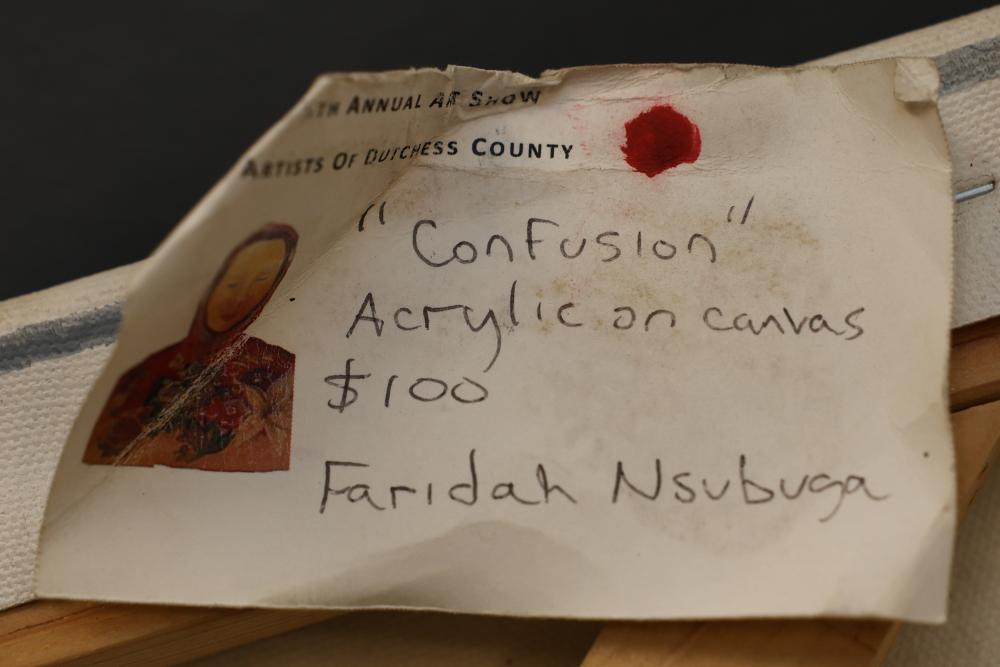 TH ANNUAL ART SHOW
ARTISTS OF DUTCHESS COUNTY
"Confusion"
Acrylic on canvas
$100
Faridah Nsubuga